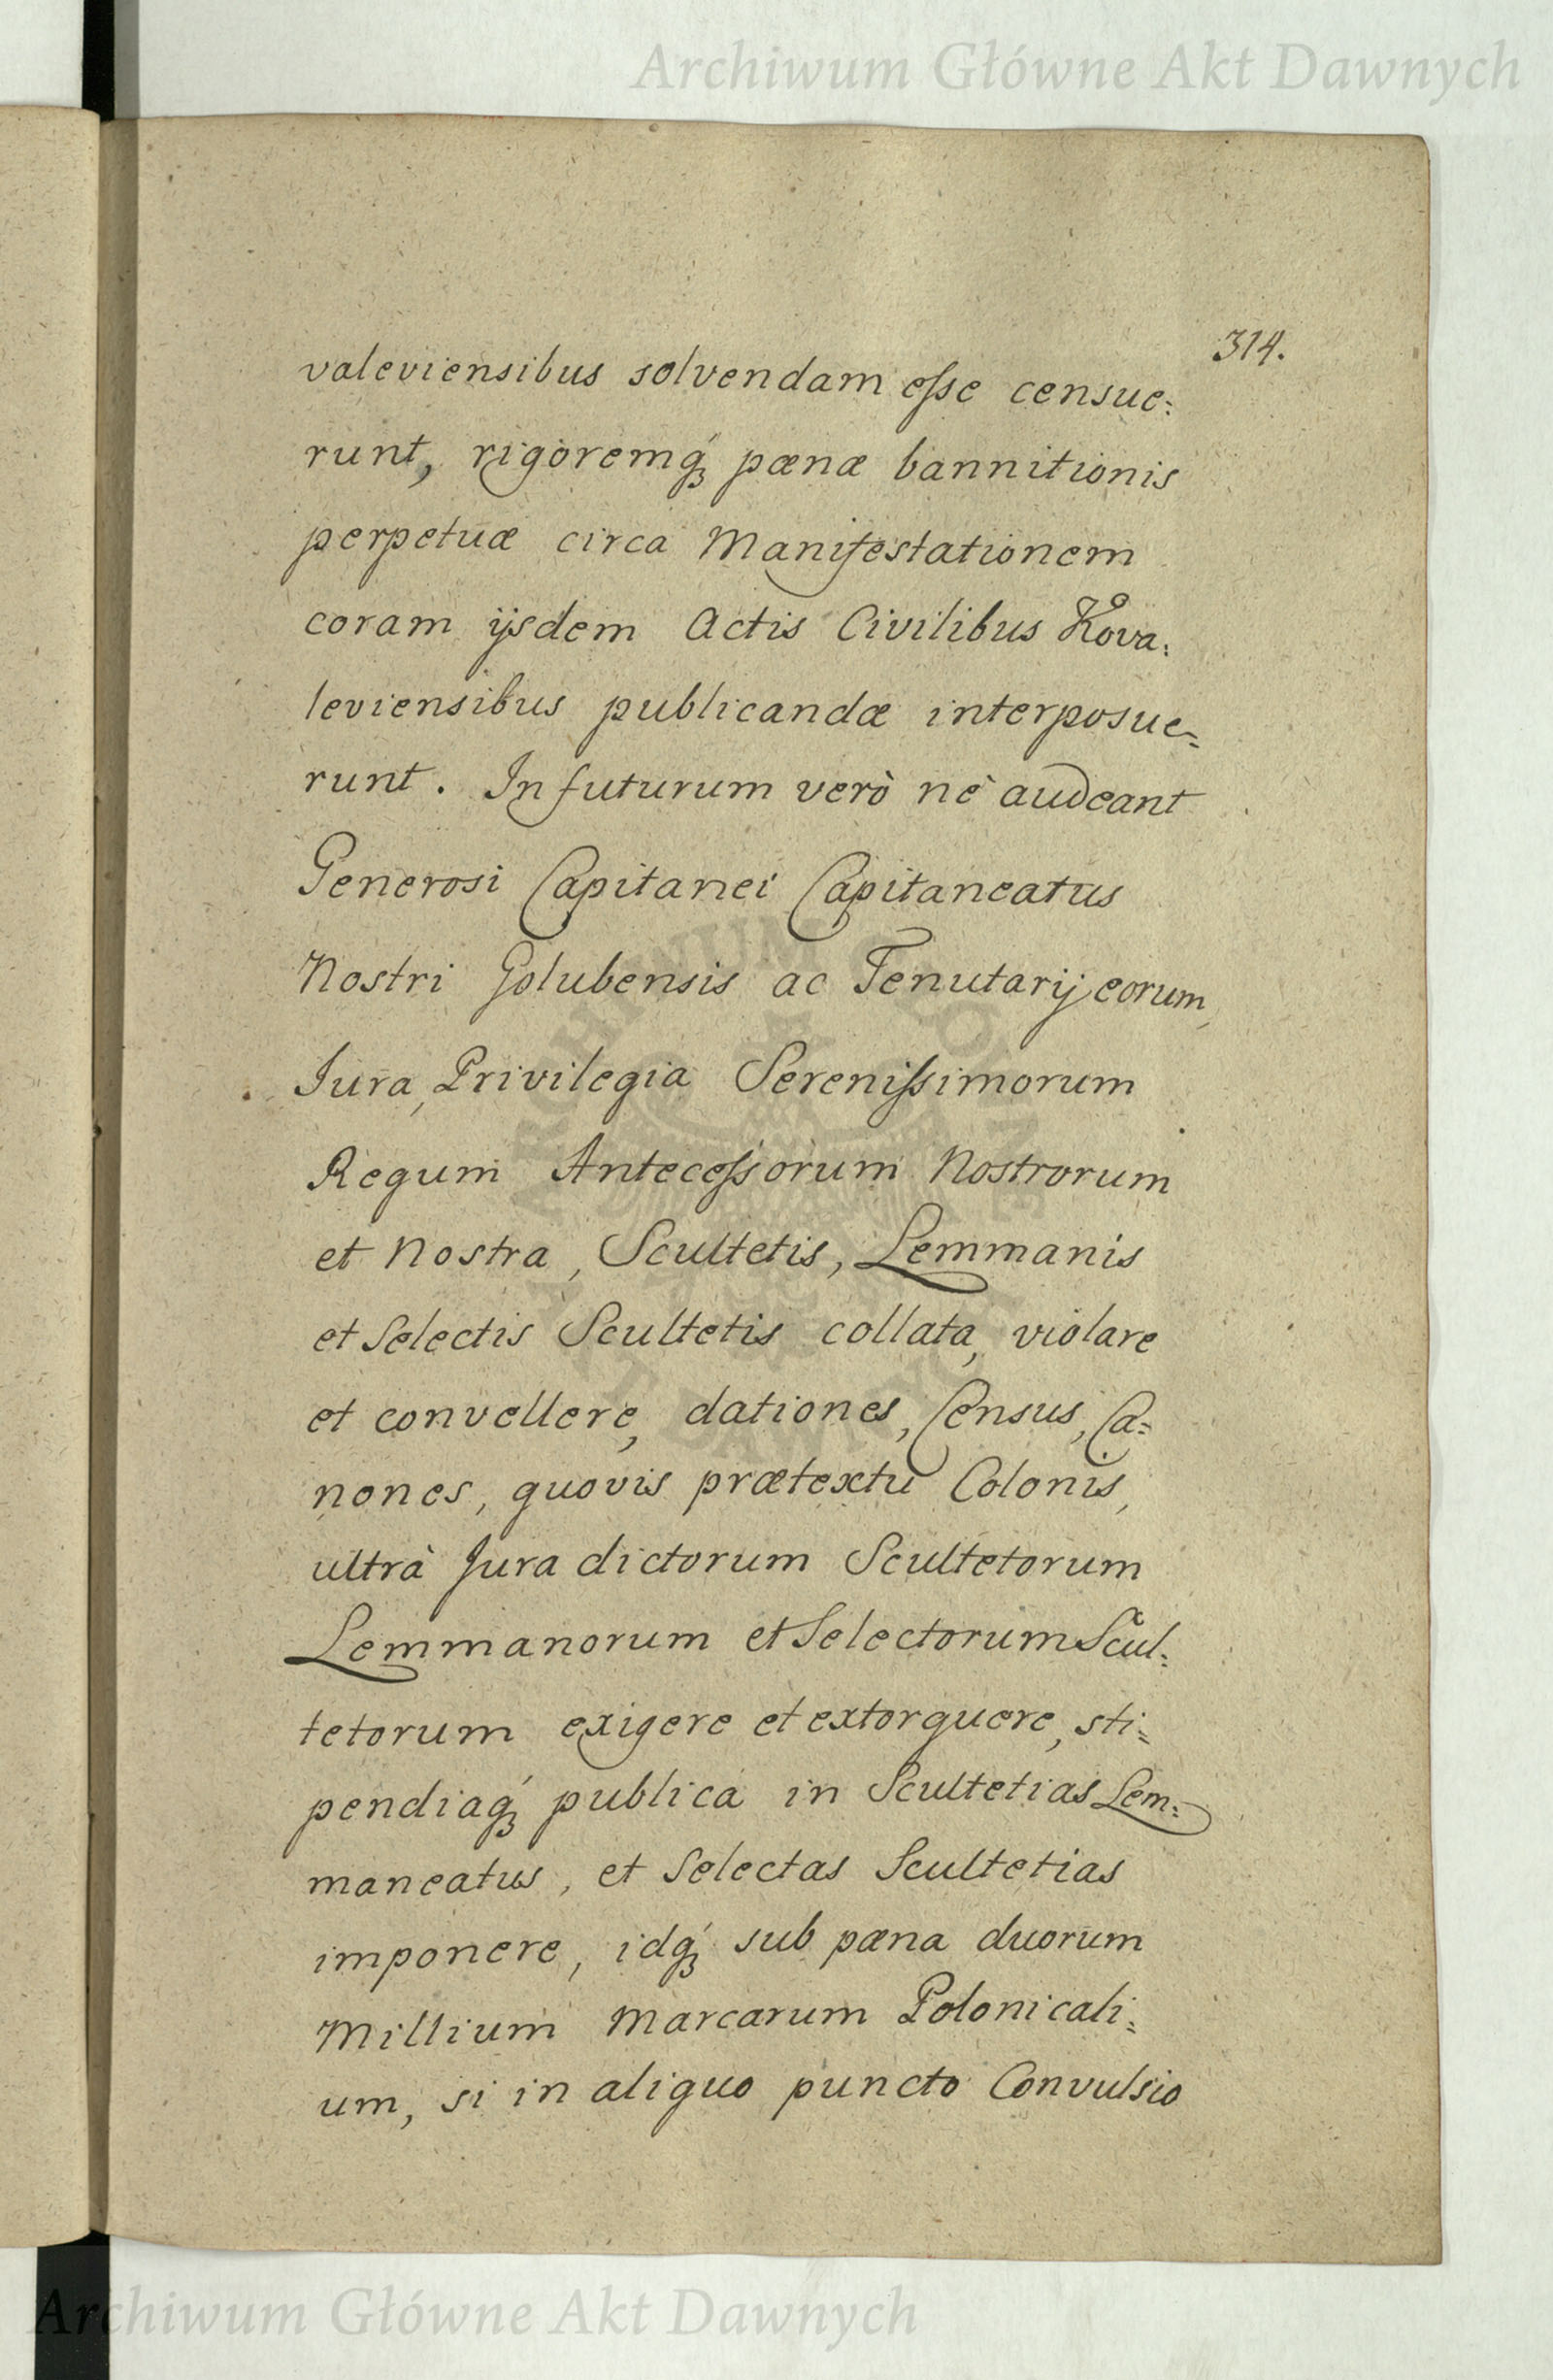 Archiwum Główne Akt Dawnych
314.
valeviensibus solvendam esse censue:
runt, rigoremq́ꝫ pænæ bannitionis
perpetuæ circa Manifestationem
coram ijsdem Actis Civilibus Kova:
leviensibus publicandæ interposue=
runt. In futurum verò nè audeant
Generosi Capitanei Capitaneatus
Nostri Golubensis ac Tenutarij eorum,
Jura, Privilegia Serenissimorum
Regum Antecessorum Nostrorum
et Nostra, Scultetis, Lemmanis
et Selectis Scultetis collata, violare
et convellere, dationes, Census, Ca=
nones, quovis prætextu Colonis,
ultrà Jura dictorum Scultetorum
Lemmanorum et Selectorum Scul:
tetorum exigere et extorquere, sti=
pendiaq́ꝫ publica in Scultetias Lem:
maneatus, et Selectas Scultetias
imponere, idq́ꝫ sub pæna duorum
Millium Marcarum Polonicali:
um, si in aliquo puncto Convulsio
Archiwum Główne Akt Dawnych